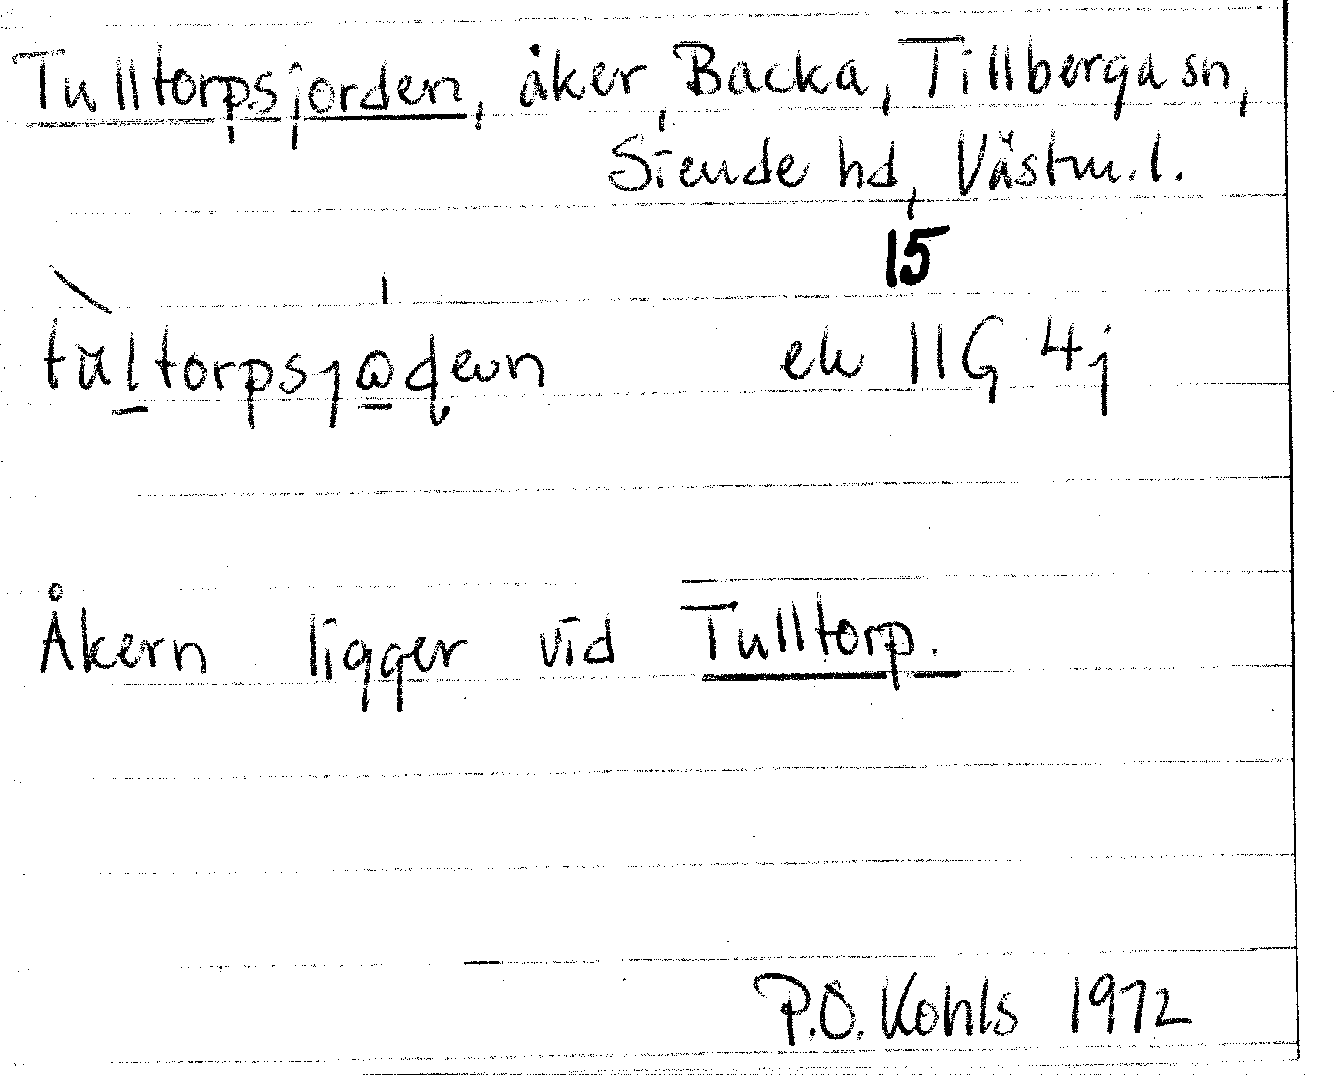 Tulltorpsjorden, åker, Backa, Tillberga sn,
Siende hd, Västm.l.
15
ek 11G 4j
Åkern ligger vid Tulltorp.
P.O. Kohls 1972